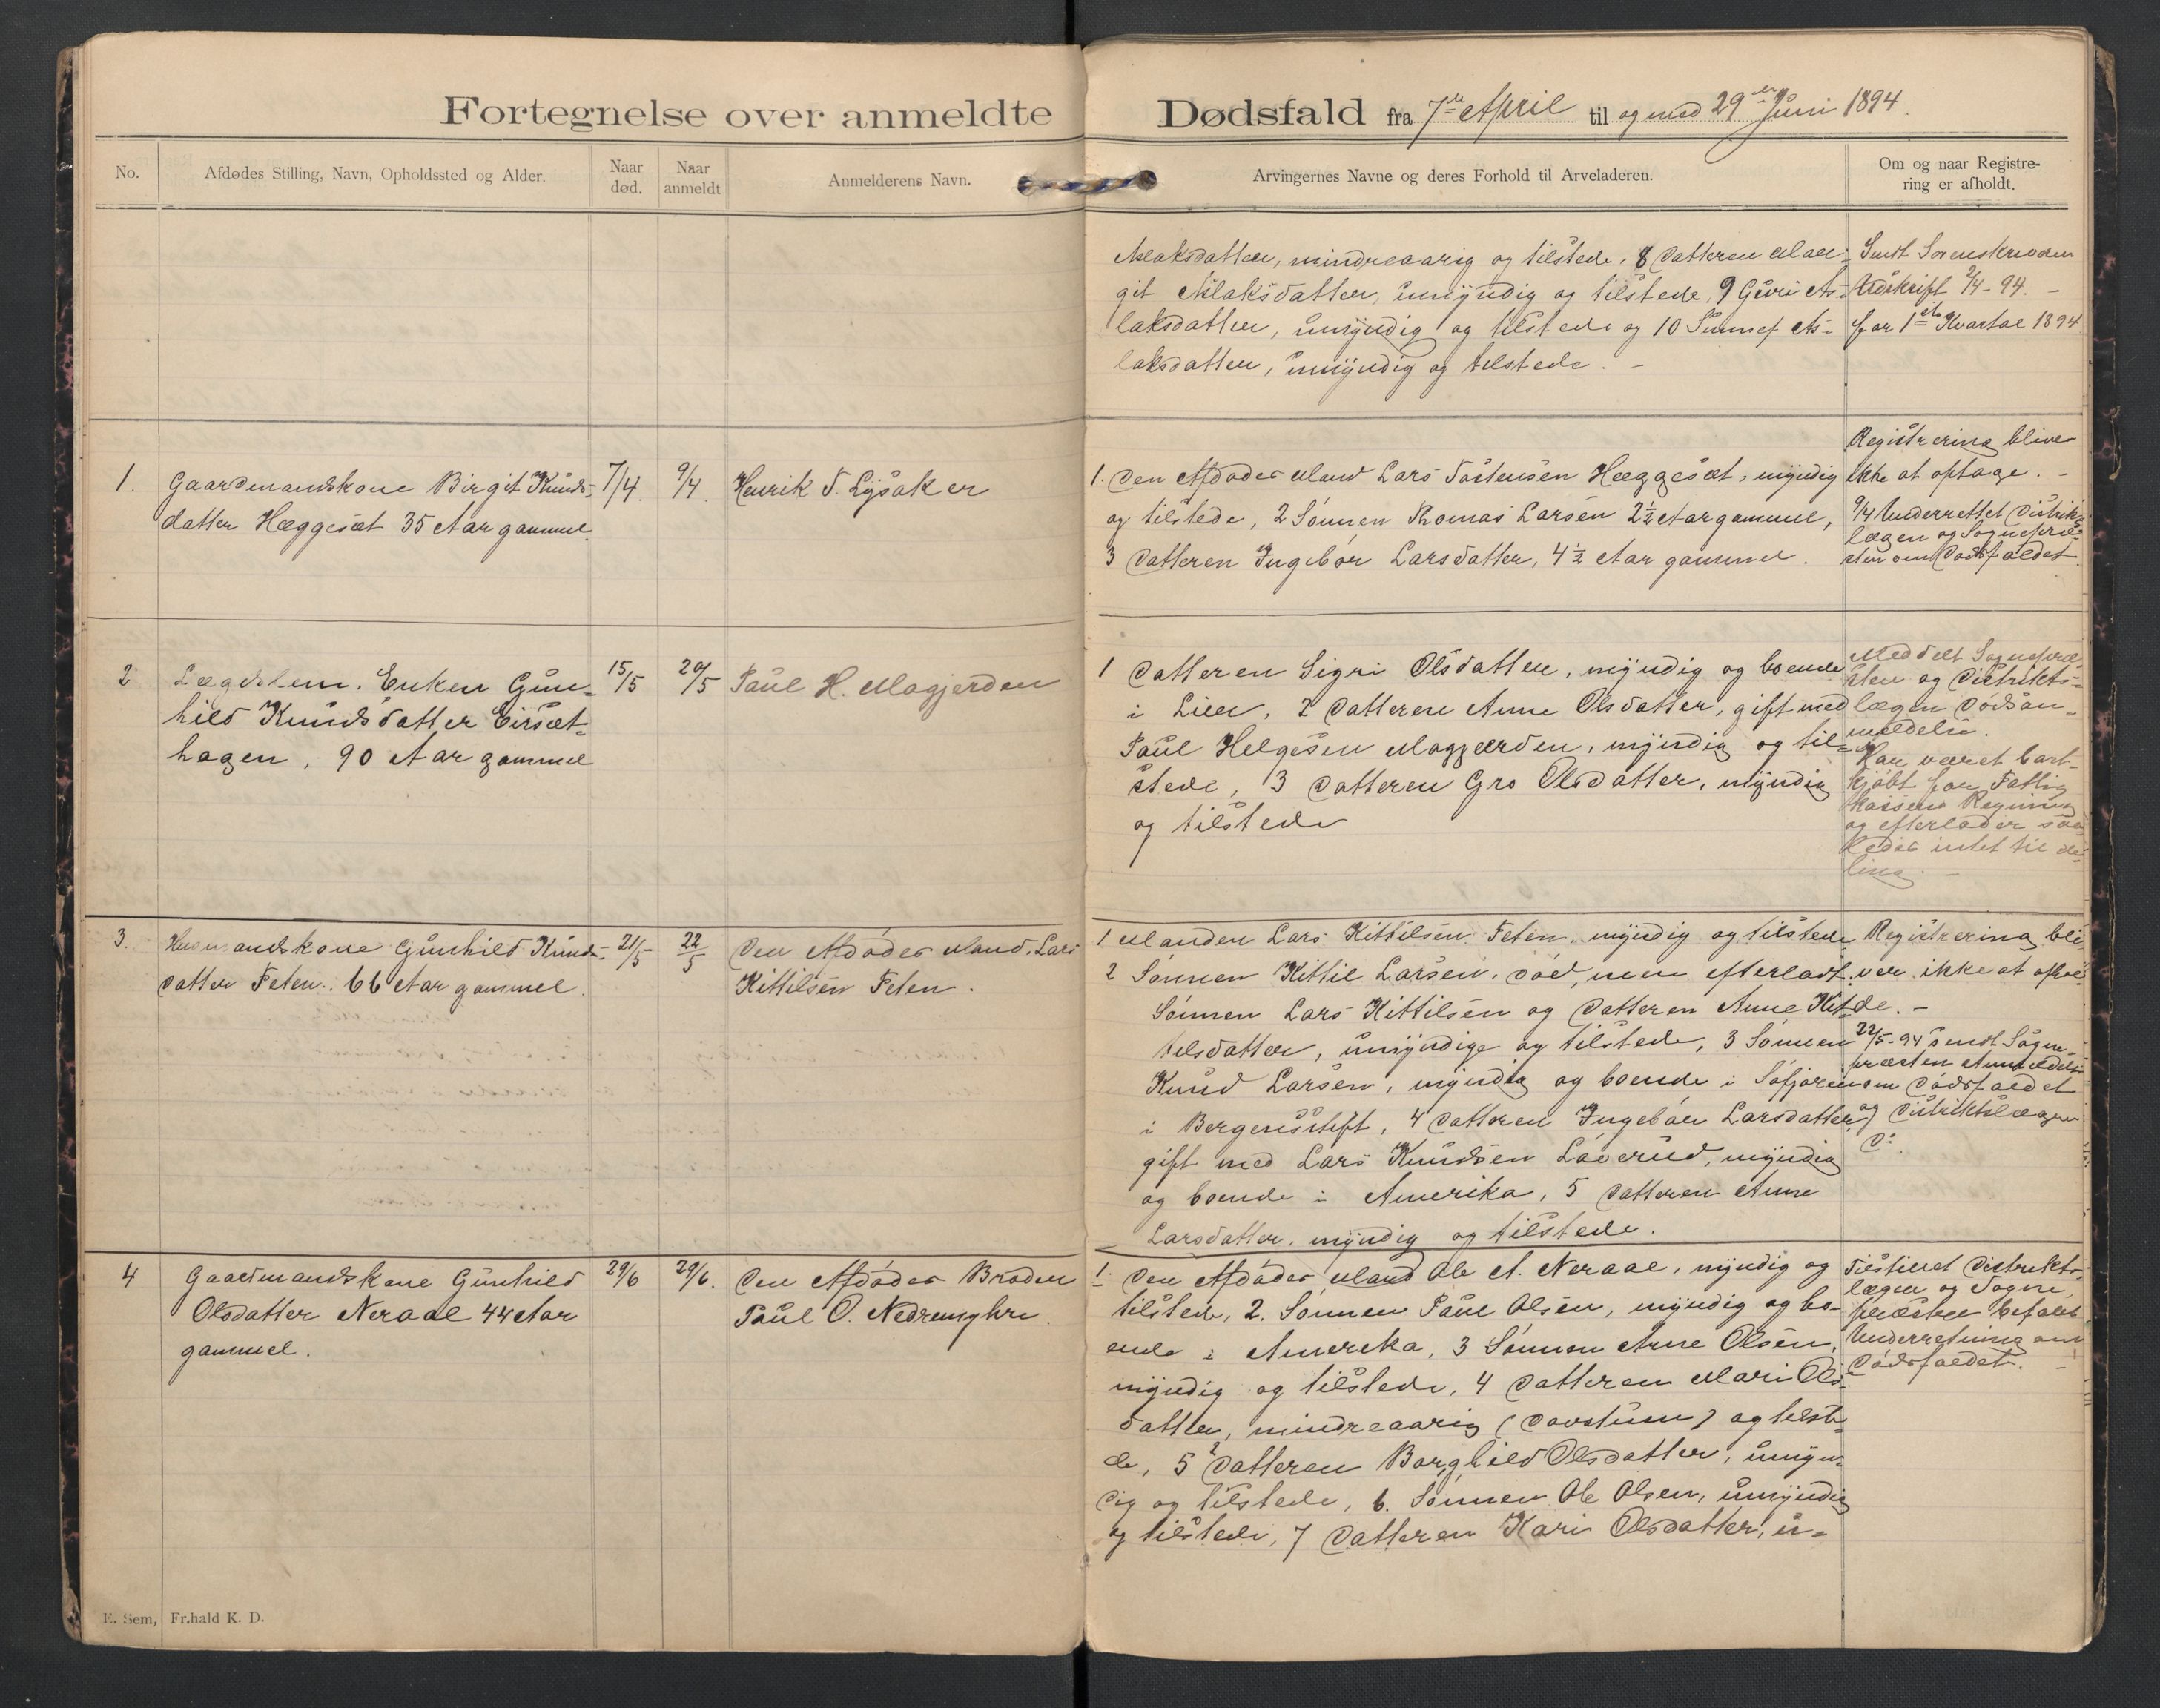 Fortegnelse over anmeldte Dødsfald fra 7de April til og med 29de Juni 1894.
No.
Afdødes Stilling, Navn, Opholdssted og Alder.
Naar
død.
Naar
anmeldt
Anmelderens Navn.
Arvingernes Navne og deres Forhold til Arveladeren.
Om og naar Registre-
ring er afholdt.
Aslaksdatter, mindreaarig og tilstede, 8 Datteren Mar-
git Aslaksdatter, umyndig og tilstede, 9 Guri As-
laksdatter, umyndig og tilstede og 10 Sunnef As-
laksdatter, umyndig og tilstede. -
Sendt Sorenskriveren
Udskrift 2/4 - 94. -
for 1ste Kvartal 1894
1.
Gaardmandskone Birgit Knuds-
datter Hæggesæt 35 Aar gammel.
7/4.
9/4.
Henrik T. Lysaker
1. Den Afdødes Mand Lars Tostensen Hæggesæt, myndig
og tilstede, 2 Sønnen Thomas Larsen 2 1/2 Aar gammel,
3 Datteren Ingebør Larsdatter, 4 1/2 Aar gammel.
Registrering bliver
ikke at optage. -
9/4 Underrettet Distrikts
lægen og Sognepræ-
sten om Dødsfaldet.
2
Lægdslem, Enken Gun-
hild Knudsdatter Eirsæt-
hagen, 90 Aar gammel
15/5
20/5
Paul H. Magjerden
1 Datteren Sigri Olsdatter, myndig og boende
i Lier, 2 Datteren Anne Olsdatter, gift med
Paul Helgesen Magjerden, myndig og til-
stede, 3 Datteren Gro Olsdatter, myndig
og tilstede
Meddelt Sognepræ-
sten og Distrikts-
lægen Dødsan-
meldelse.
Har været bort-
kjøbt for Fattig
kassens Regning
og efterlader saa-
ledes intet til de-
ling. -
3.
Husmandskone Gunhild Knuds-
datter Feten. 66 Aar gammel.
21/5
22/5
Den Afdødes Mand, Lars
Kittilsen Feten.
1 Manden Lars Kittilsen Feten, myndig og tilstede
2 Sønnen Kittil Larsen, død, men efterladt
Sønnen Lars Kittilsen og Datteren Anne Kit-
telsdatter, umyndige og tilstede, 3 Sønnen
Knud Larsen, myndig og boende i Sofjoren
i Bergensstift, 4 Datteren Ingebør Larsdatter
gift med Lars Knudsen Løverud, myndig
og boende i Amerika, 5 Datteren Anne
Larsdatter, myndig og tilstede.
Registrering bli
ver ikke at afhol-
de. -
22/5-94 sendt Sogne-
præsten Anmeldelse
om Dødsfaldet
og Distriktslægen
Do.
4
Gaardmandskone Gunhild
Olsdatter Neraal 44 Aar
gammel.
29/6
29/6.
Den Afdødes Broder
Paul O. Nedremyhre.
1. Den Afdødes Mand Ole A. Neraal, myndig og
tilstede, 2. Sønnen Paul Olsen, myndig og bo-
ende i Amerika, 3 Sønnen Arne Olsen,
myndig og tilstede, 4 Datteren Mari Ols-
datter, mindreaarig (Døvstum) og tilste-
de, 5 Datteren Borghild Olsdatter, umyn-
dig og tilstede, 6. Sønnen Ole Olsen, umyndig
og tilstede, 7 Datteren Kari Olsdatter, u-
Tilstillet Distrikts-
lægen og Sogne-
præsten befalet
Underretning om
Dødsfaldet. -
E. Sem, Fr.hald K. D.